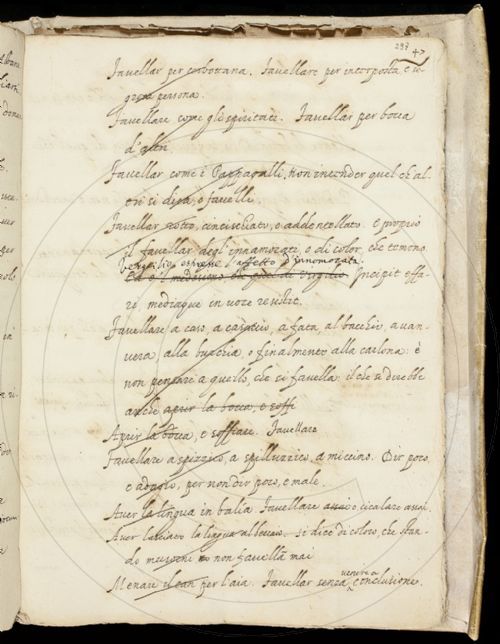 293 47
Favellar per cerbottana. Favellare per interposta, e se-
greta persona.
Favellare come gli spiritati. Favellar per bocca
d'altri
Favellar come i Pappagalli, non intender quel ch'al-
tri si dica, o favelli.
Favellar rotto, cincischiato, o addentellato. è proprio
il favellar degl'innamorati, o di color, che temono.
Vergilio espresse l'affetto d'innamorata.
Ed è il medesimo, che quel di Virgilio. Incipit effa-
ri, mediaque in voce resistit.
Favellare a caso, a casaccio, a fata, al bacchio, a van-
vera, alla burchia, e finalmente alla carlona: è
non pensare a quello, che si favella: il che si direbbe
anche aprir la bocca, e soffi
Aprir la bocca, e soffiare. Favellare
Favellare a spizzico, a spelluzzico, a miccino. Dir poco,
e adagio, per non dir poco, e male.
Aver la lingua in balia Favellare assai e cicalare assai.
Aver lasciato la lingua al beccaio. si dice di coloro, che stan-
do non favellan mai
Menare il can per l'aia. Favellar senza venire a conclusione.